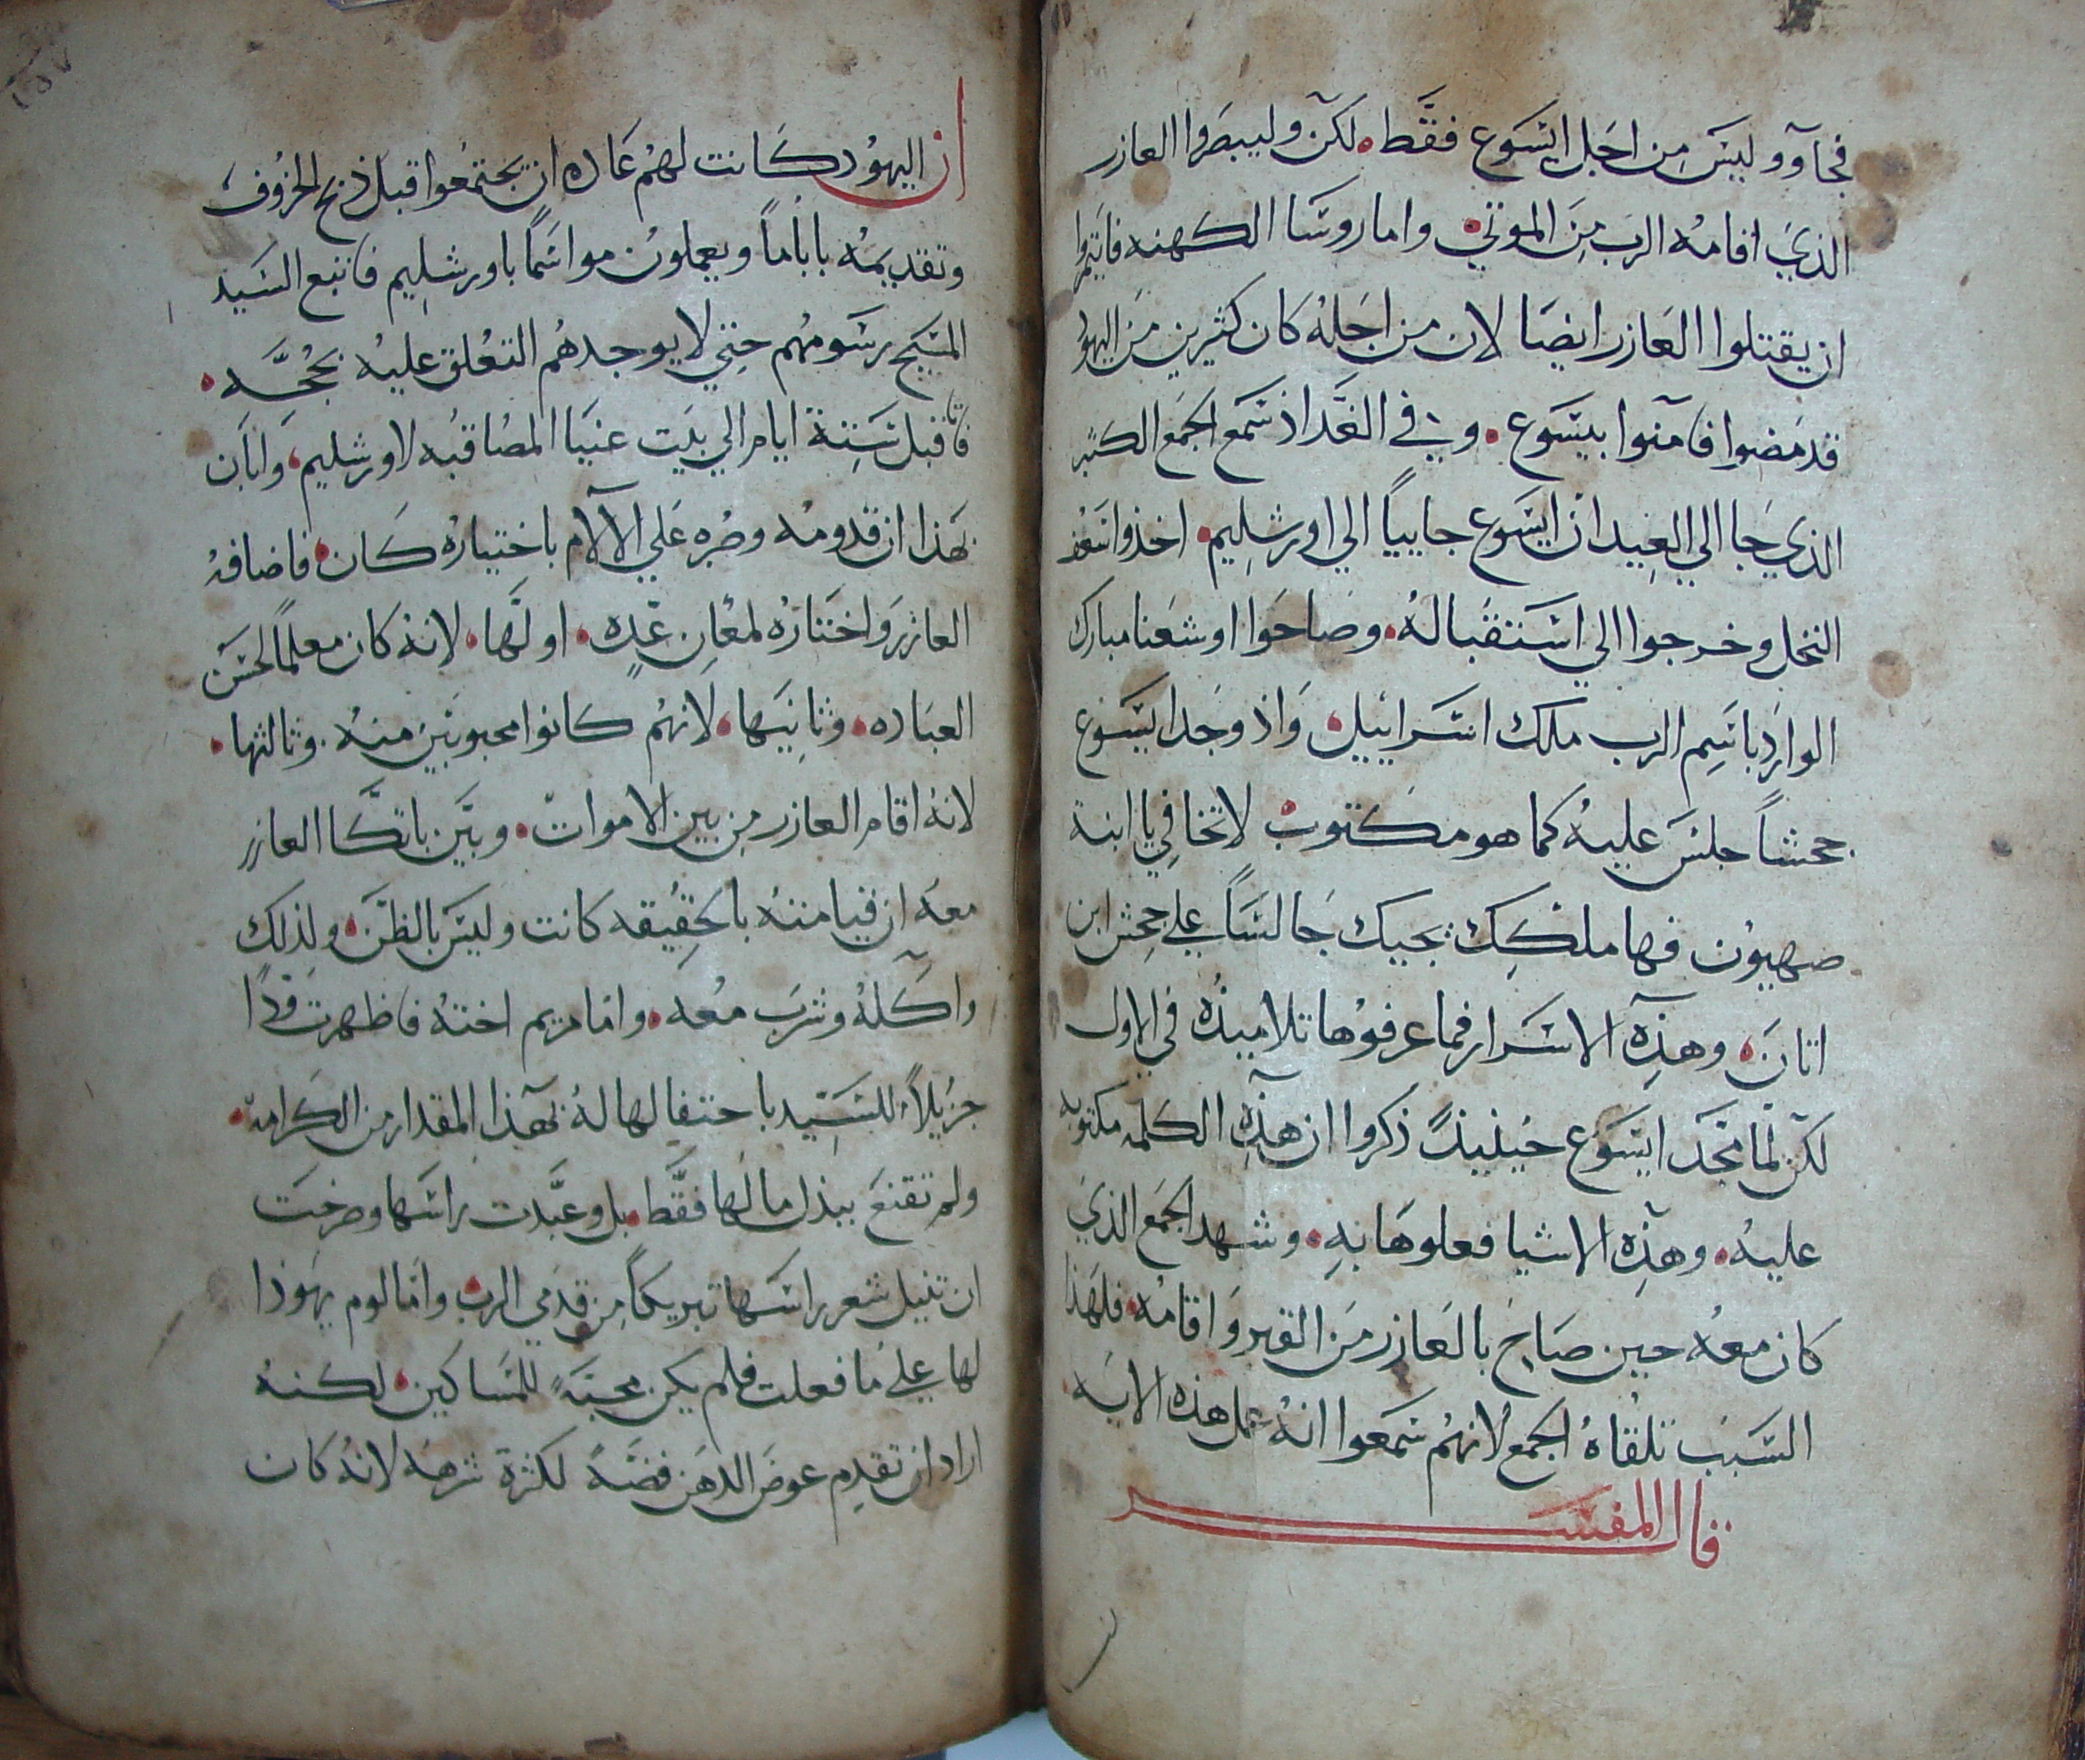 فجآوو ليس من اجل ايسوع فقط، لكن وليبصروا العازر
الذي اقامه الرب من الموتي، واما روسا الكهنه فايتمروا
ان يقتلوا العازر ايضا لان من اجله كان كثيرين من اليهود
قد مضوا فامنوا بيسوع، وفي الغد اذ سمع الجمع الكثير
الذي جا الي العيد ان ايسوع جايياً الي اورشليم، اخذوا سعف
النخل وخرجوا الي استقباله، وصاحوا اوشعنا مبارك
الوارد باسم الرب ملك اسراييل، واذ وجد ايسوع
جحشاً جلس عليه كما هو مكتوب، لا تخافي يا ابنة
صهيون فها ملكك يجيك جالساً علي جحش ابن
اتان، وهذه الاسرار فما عرفوها تلاميذه في الاول
لكن لما تمجد ايسوع حينيذٍ ذكروا ان هذه الكلمه مكتوبه
عليه، وهذه الاشيا فعلوها به، وشهد الجمع الذي
كان معه حين صاح بالعازر من القبر واقامه، فلهذا
السبب تلقاه الجمع لانهم سمعوا انه عمل هذه الايه
قال المفسر
ان اليهود كانت لهم عاده ان يجتمعوا قبل ذبح الخروف
وتقديمه باياماً ويعملون مواسماً باورشليم فاتبع السيد
المسيح رسومهم حتي لا يوجدهم التعلق عليه بحجه،
فاتا قبل ستة ايام الي بيت عنيا المصاقبه لاورشليم، وابان
بهذا ان قدومه وصبره علي الآلام باختياره كان، فاضافه
العازر واختاره لمعانٍ عده، اولها، لانه كان معلماً لحسن
العباده، وثانيها، لانهم كانوا محبوبين منه، وثالثها،
لانه اقام العازر من بين الاموات، وبيّن باتكا العازر
معه ان قيامته بالحقيقه كانت وليس بالظن، ولذلك
واكله وشرب معه، واما مريم اخته فاظهرت وداً
جزيلاً للسيد باحتفالها له بهذا المقدار من الكرامه،
ولم تقنع ببذل مالها فقط، بل وعبّدت راسها وصرخت
ان تنيل شعر راسها تبريكاً من قدمي الرب، واما لوم يهوذا
لها علي ما فعلت فلم يكن محبةً للمساكين، لكنه
اراد ان تقدم عوض الدهن فضةً لكثرة شرهه لانه كان